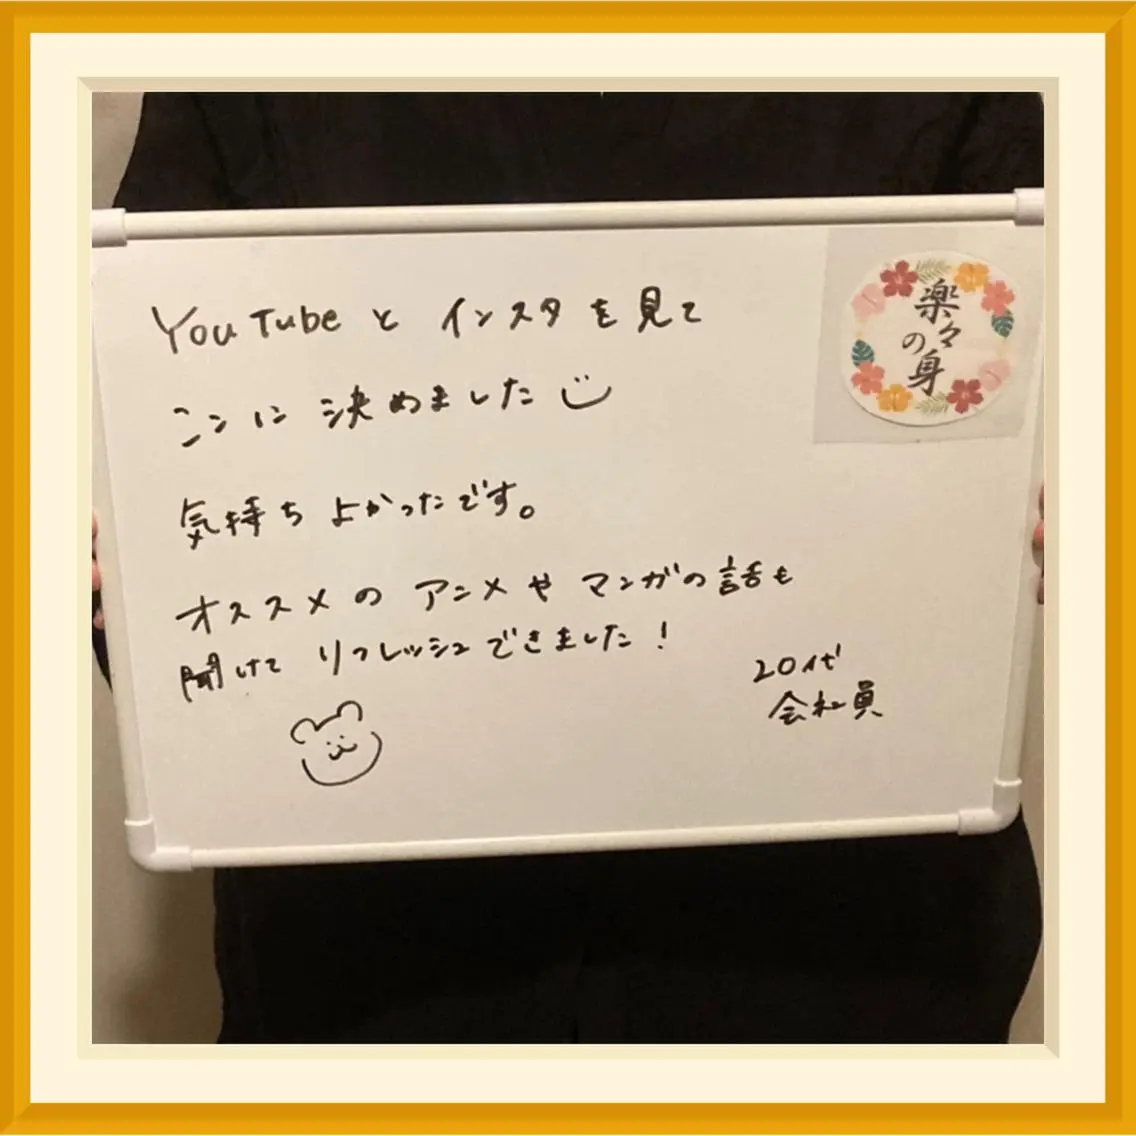 YouTubeとインスタを見て
ここに決めました
気持ちよかったです。
オススメのアニメやマンガの話も
聞けてリフレッシュできました!
20代
会社員
楽々の身